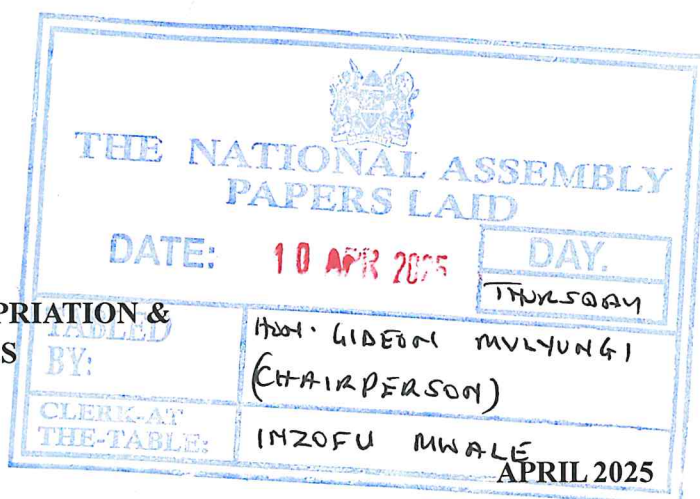 THE NATIONAL ASSEMBLY
PAPERS LAID
DATE: 10 APR 2025
DAY.
THURSDAY
PRIATION &
S
TABLED
BY:
HON. GIDEON MULYUNGI
(CHAIRPERSON)
CLERK-AT
THE-TABLE:
INZOFU MWALE
APRIL 2025